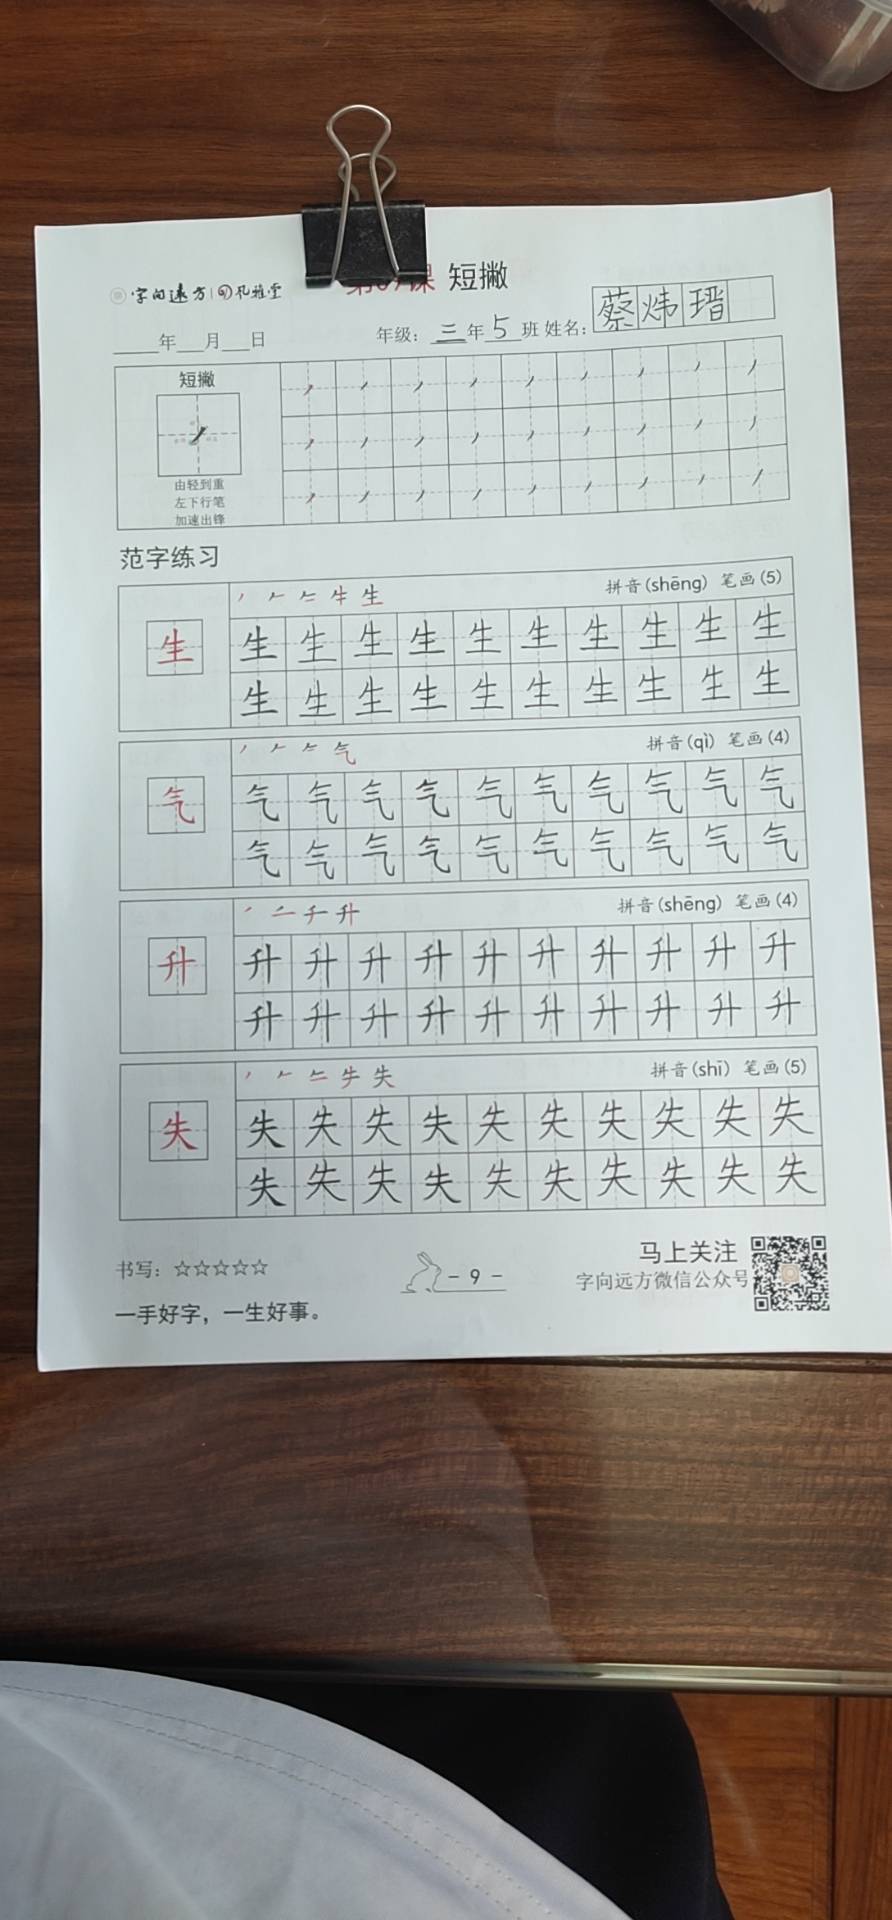 字向远方 孔雅堂
课 短撇
年 月 日 年级：三年5班 姓名：蔡炜瑨
短撇
由轻到重
左下行笔
加速出锋
范字练习
生 拼音(shēng) 笔画(5)
生 生 生 生 生 生 生 生 生 生 生
生 生 生 生 生 生 生 生 生 生
气 拼音(qì) 笔画(4)
气 气 气 气 气 气 气 气 气 气 气
气 气 气 气 气 气 气 气 气 气
升 拼音(shēng) 笔画(4)
升 升 升 升 升 升 升 升 升 升 升
升 升 升 升 升 升 升 升 升 升
失 拼音(shī) 笔画(5)
失 失 失 失 失 失 失 失 失 失 失
失 失 失 失 失 失 失 失 失 失
书写：☆☆☆☆☆
一手好字，一生好事。
- 9 -
马上关注
字向远方微信公众号